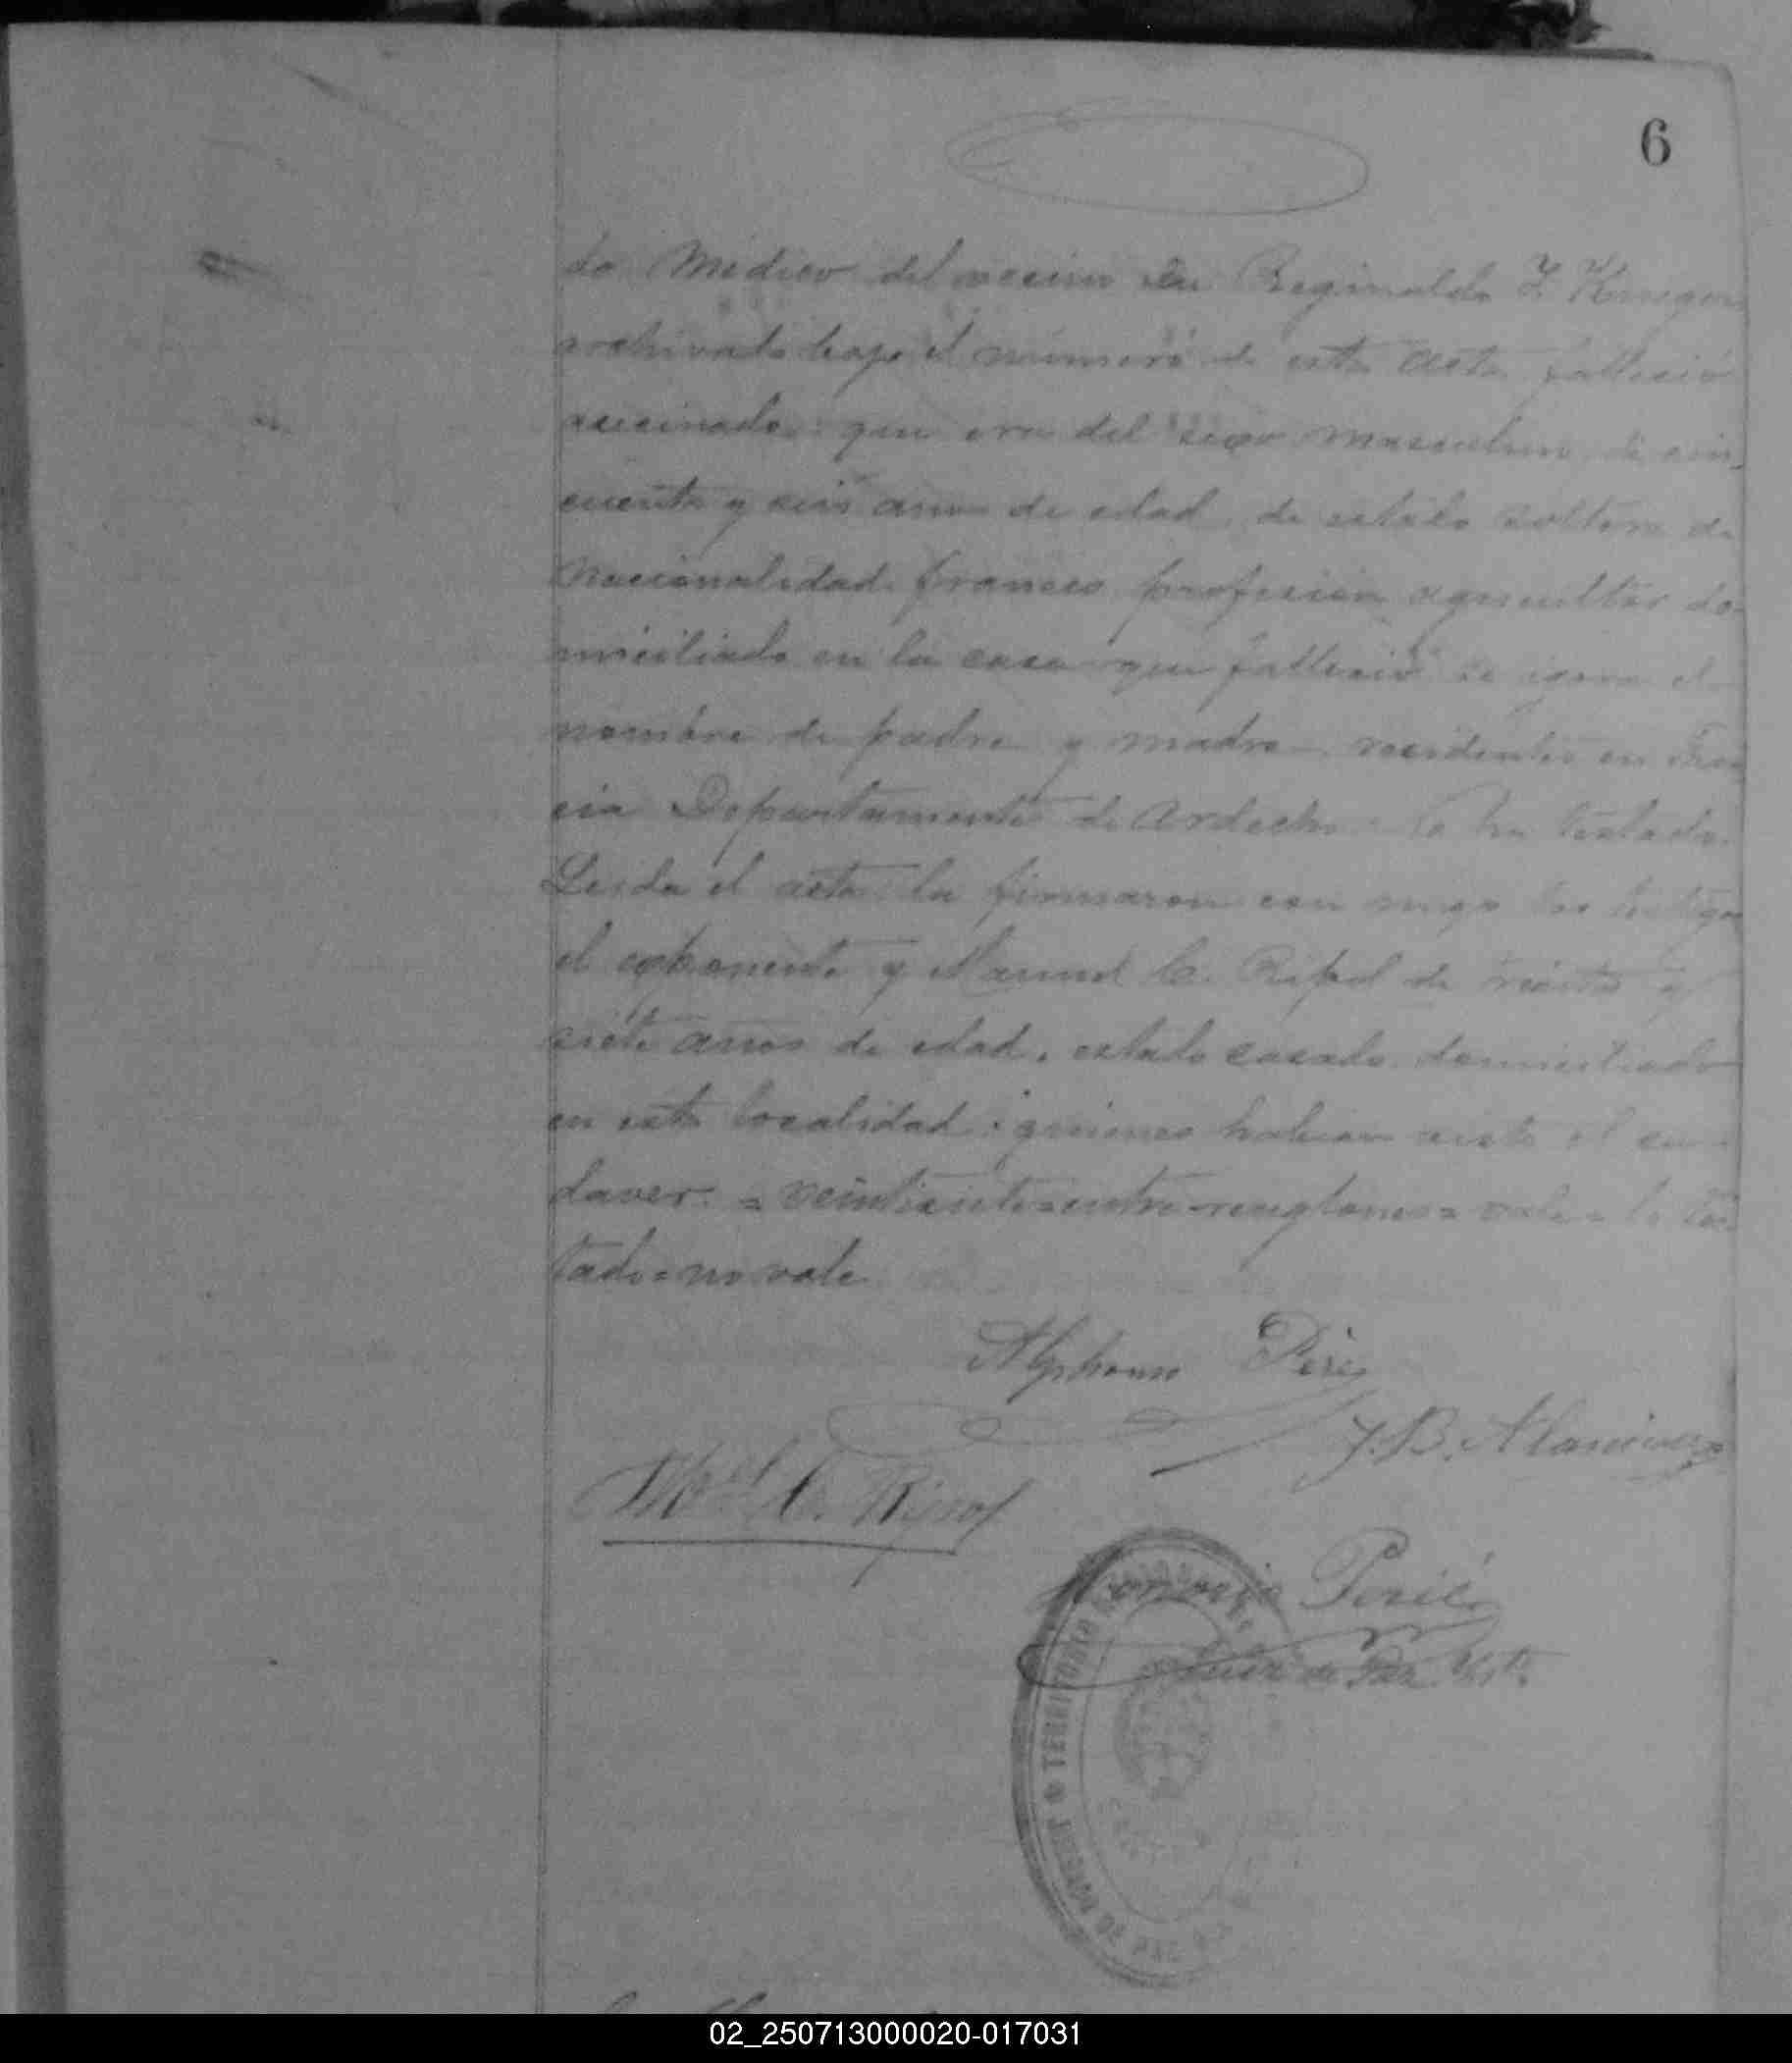 6
do Medico del vecino Reginaldo
archivado bajo el número de esta acta falleció
asecinado: que era del sexo masculino, de cin-
cuenta y seis años de edad, de estado soltero de
Nacionalidad frances profesion agricultor do-
miciliado en la casa que falleció se ignora el
nombre de padre y madre residentes en Fran
cia Departamento de Ardeche
Leida el acta la firmaron con migo los testigos
el exponente y Manuel C. Ripol de treinta y
siete años de edad, estado casado domiciliado
en esta localidad: quienes habian visto el ca-
daver. = veintisiete = entre-renglones = vale = lo tes
tado = no vale
Alphonse
J. B.
M^el C. Ripol
Juez de Paz
TERRITORIO